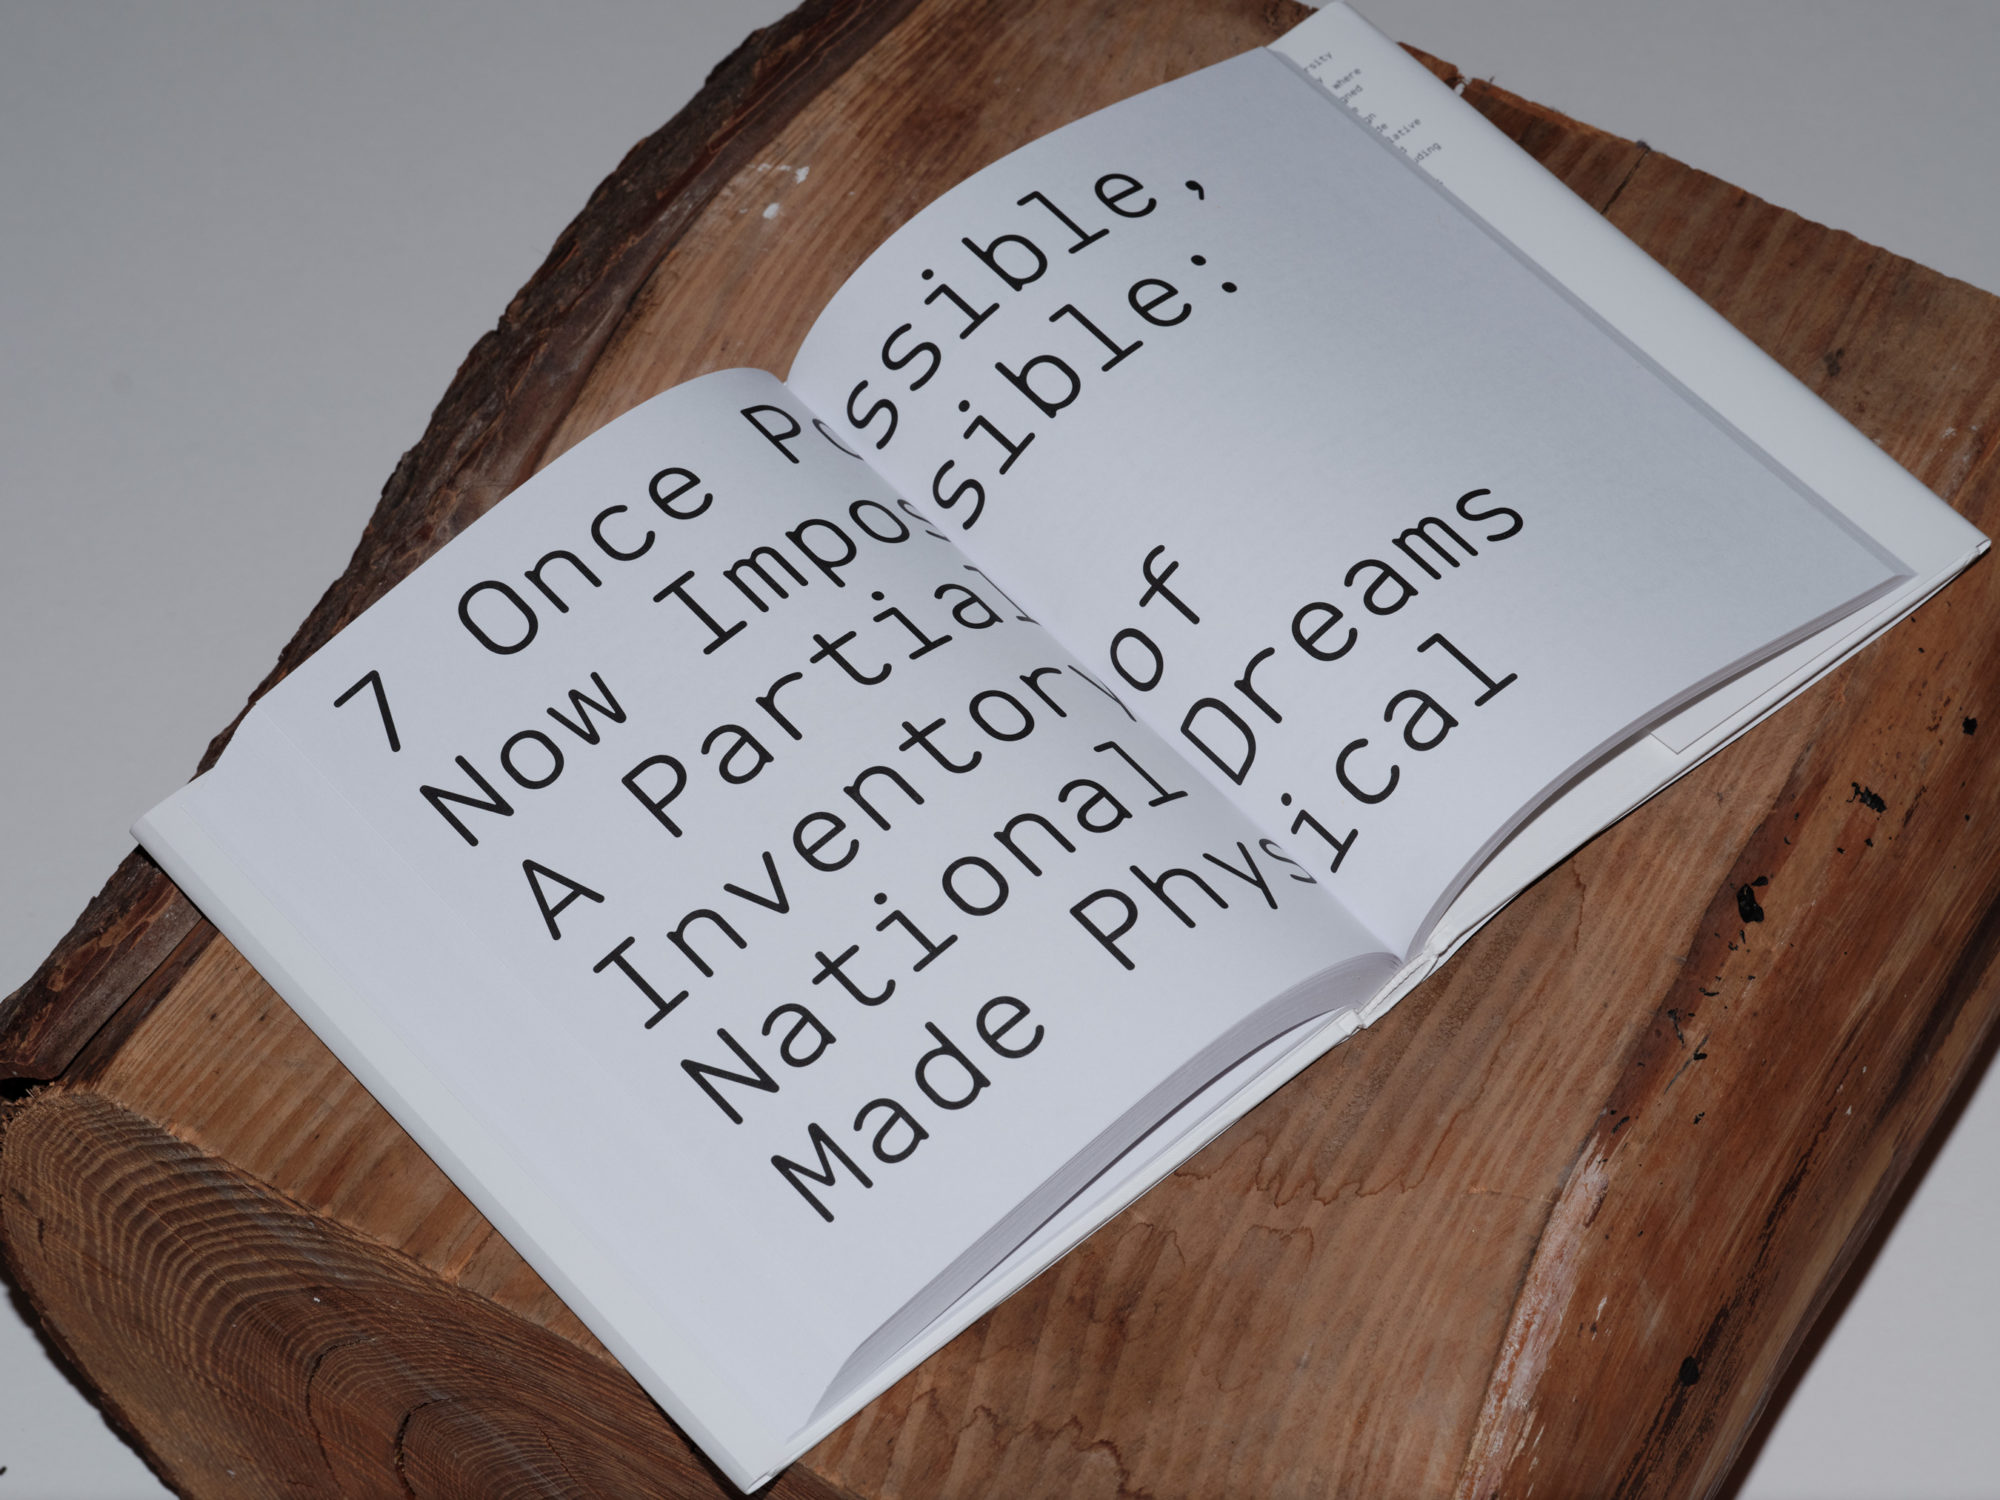 7 Once Possible,
Now Impossible:
A Partial
Inventory of
National Dreams
Made Physical
where